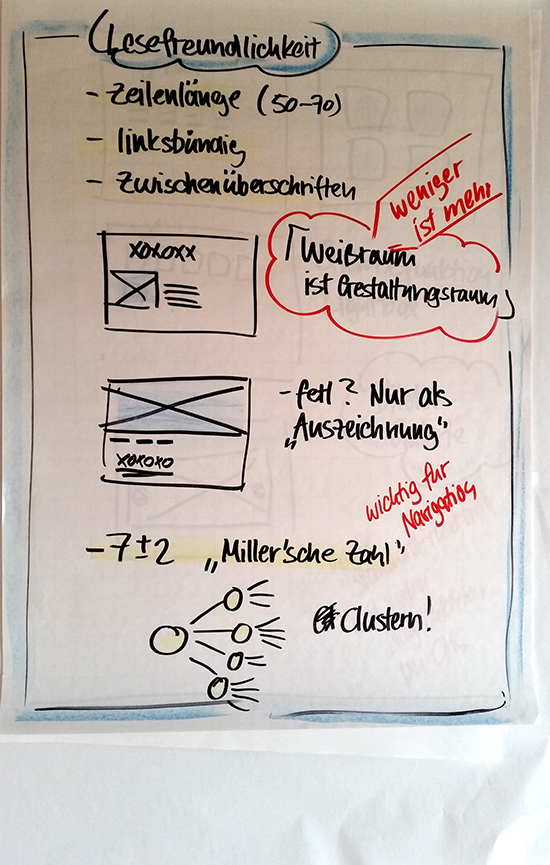 Lesefreundlichkeit
- Zeilenlänge (50-70)
- linksbündig
- Zwischenüberschriften
weniger
ist mehr
xoxoxx
Weißraum
ist Gestaltungsraum
- fett? Nur als
„Auszeichnung“
xoxoxo
wichtig für
Navigation
- 7±2 „Miller'sche Zahl“
Clustern!